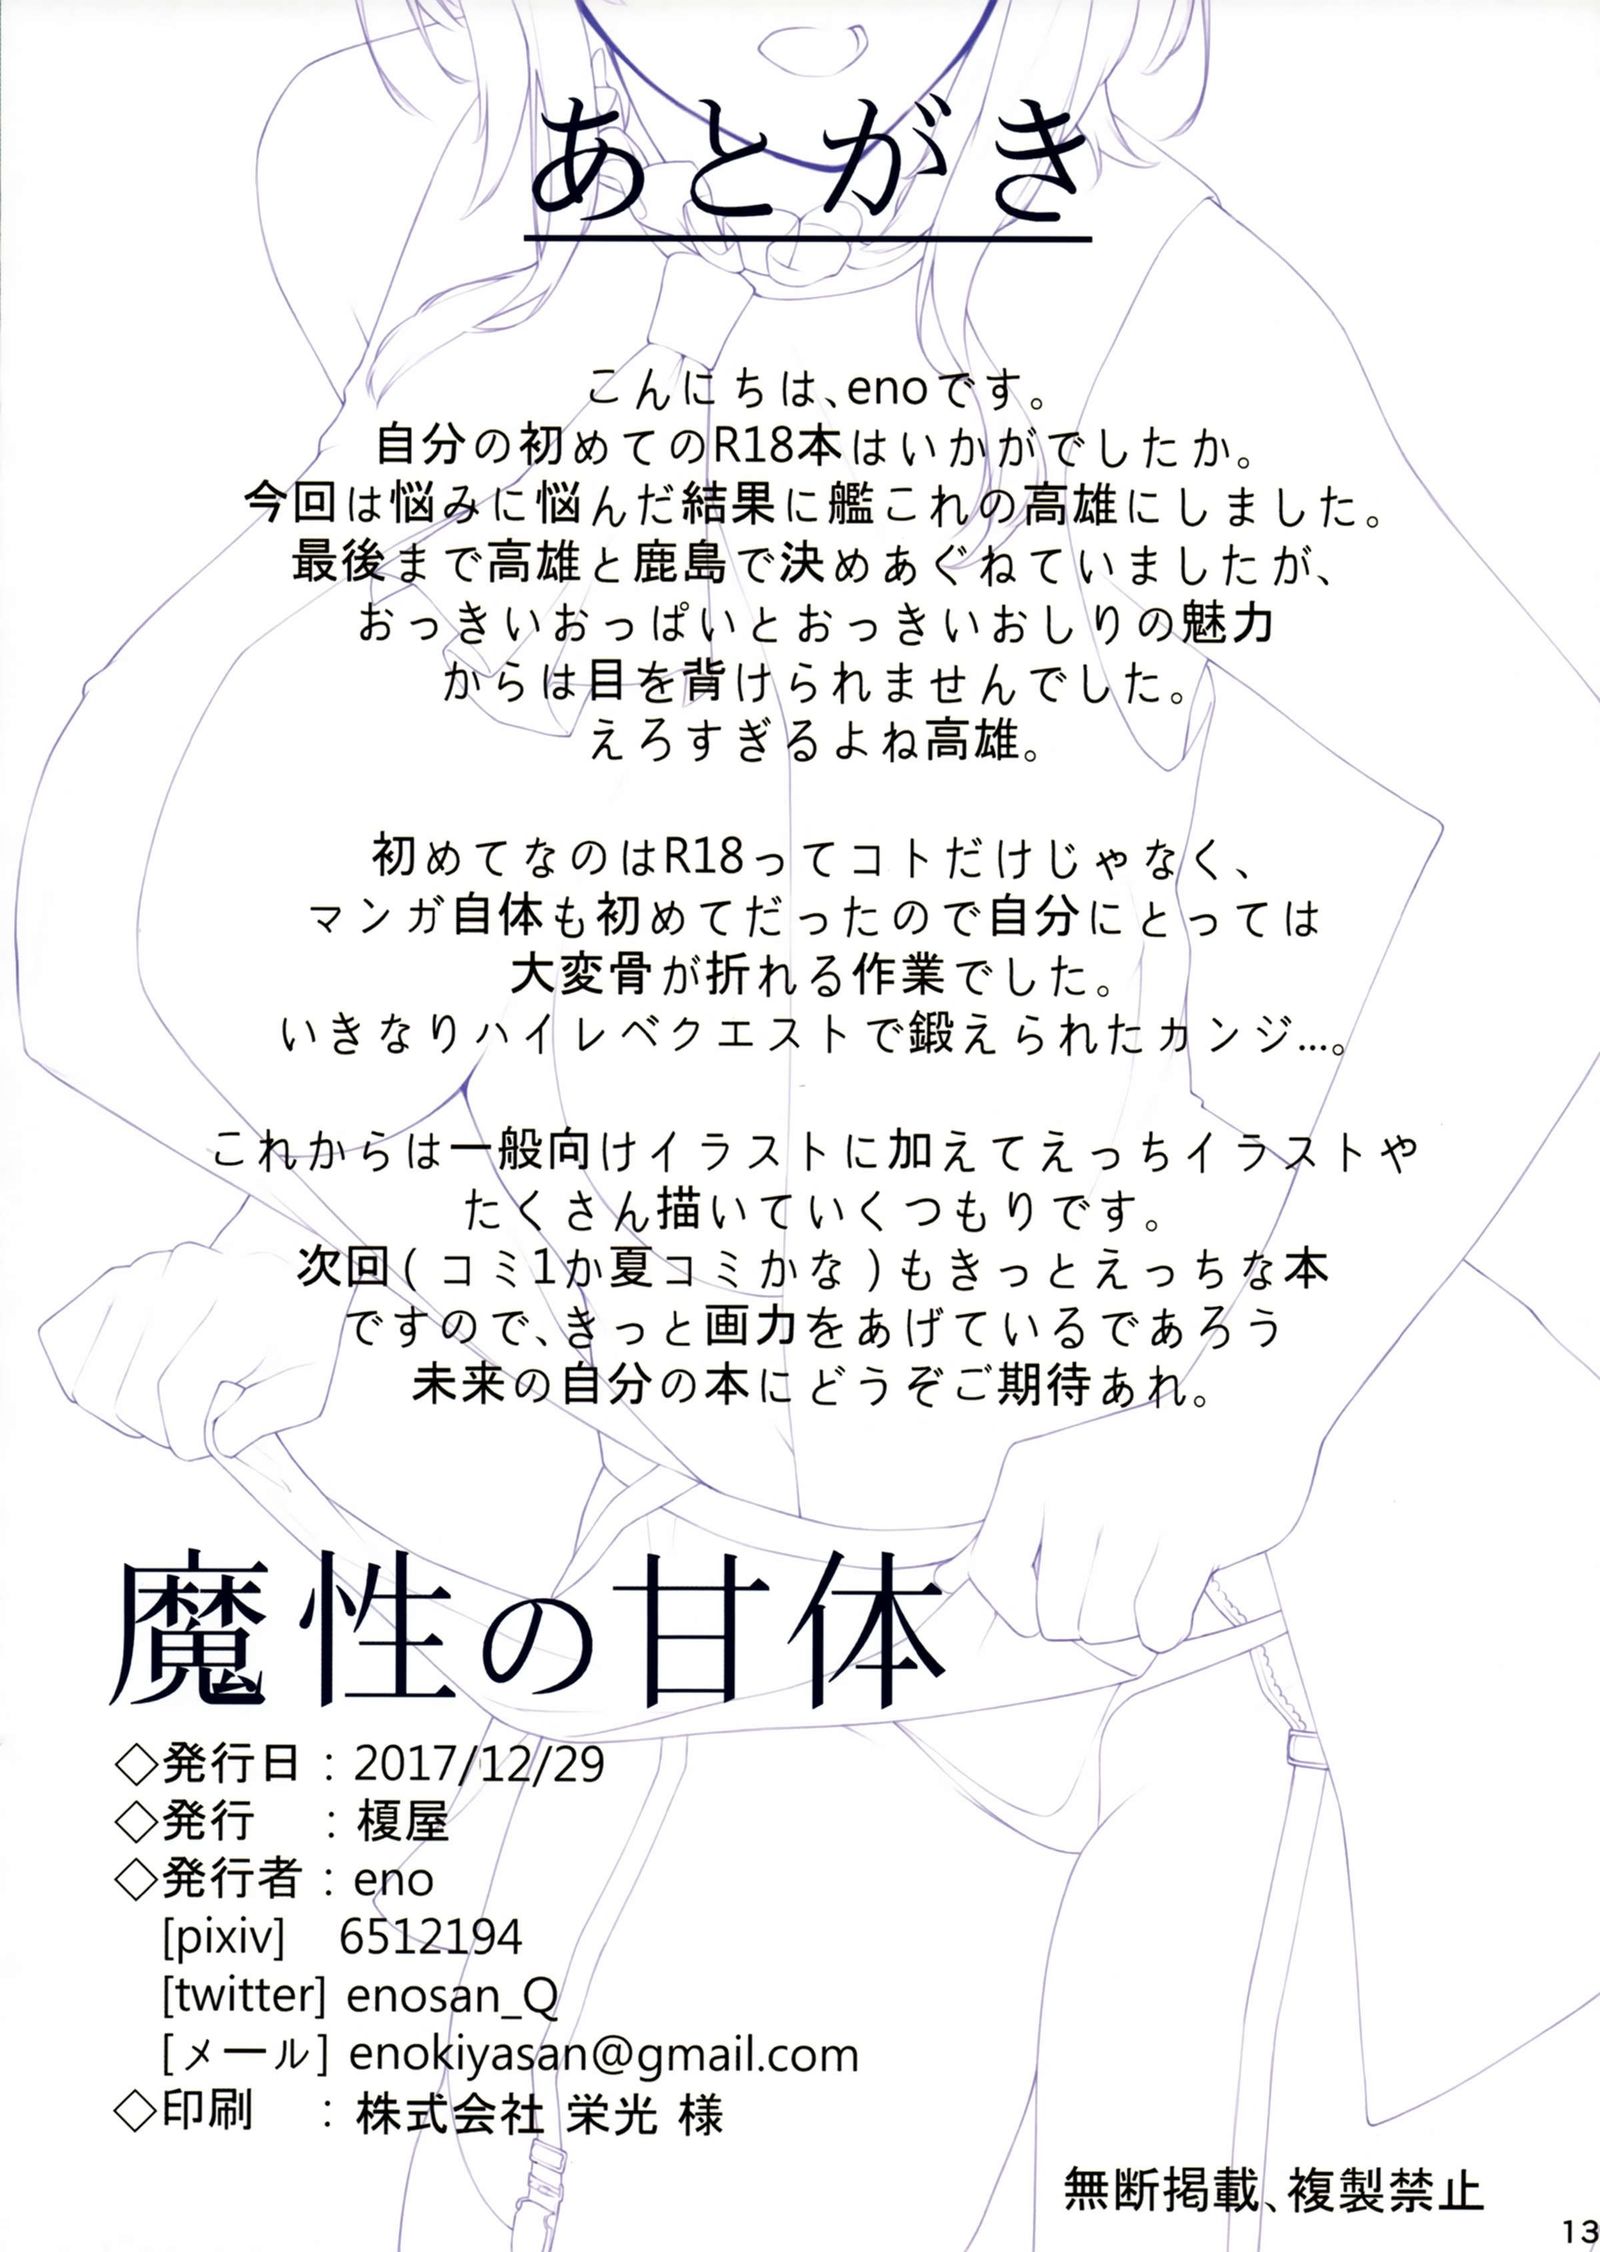 あとがき
こんにちは、enoです。
自分の初めてのR18本はいかがでしたか。
今回は悩みに悩んだ結果に艦これの高雄にしました。
最後まで高雄と鹿島で決めあぐねていましたが、
おっきいおっぱいとおっきいおしりの魅力
からは目を背けられませんでした。
えろすぎるよね高雄。
初めてなのはR18ってコトだけじゃなく、
マンガ自体も初めてだったので自分にとっては
大変骨が折れる作業でした。
いきなりハイレベクエストで鍛えられたカンジ…。
これからは一般向けイラストに加えてえっちイラストや
たくさん描いていくつもりです。
次回(コミ1か夏コミかな)もきっとえっちな本
ですので、きっと画力をあげているであろう
未来の自分の本にどうぞご期待あれ。
魔性の甘体
◇発行日：2017/12/29
◇発行　：榎屋
◇発行者：eno
[pixiv] 6512194
[twitter] enosan_Q
[メール] enokiyasan@gmail.com
◇印刷　：株式会社 栄光 様
無断掲載、複製禁止
13